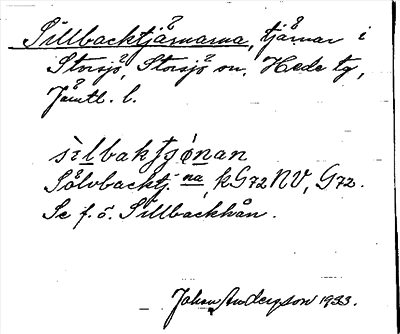 Sillbacktjärnarna, tjärnar i
Storsjö, Storsjö sn, Hede tg,
Jämtl. l.
sìlbaktjǿnan
Sölvbacktj. na, kG72NV, G72.
Se f. ö. Sillbackhån.
Johan Anderzson 1933.